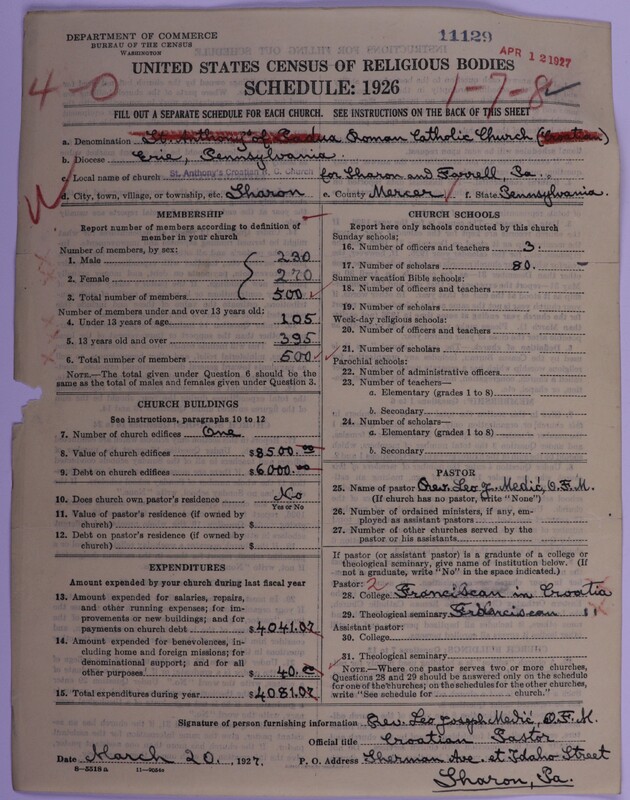 DEPARTMENT OF COMMERCE
BUREAU OF THE CENSUS
WASHINGTON
11129
APR 12 1927
UNITED STATES CENSUS OF RELIGIOUS BODIES
SCHEDULE: 1926
4-0
1-7-8
FILL OUT A SEPARATE SCHEDULE FOR EACH CHURCH. SEE INSTRUCTIONS ON THE BACK OF THIS SHEET
a. Denomination St. Anthony's of Padua Roman Catholic Church (Croatian)
b. Diocese Erie, Pennsylvania.
c. Local name of church St. Anthony's Croatian R. C. Church for Sharon and Farrell, Pa.
d. City, town, village, or township, etc. Sharon e. County Mercer f. State Pennsylvania.
MEMBERSHIP
Report number of members according to definition of member in your church
Number of members, by sex:
1. Male 230
2. Female 270
3. Total number of members 500
Number of members under and over 13 years old:
4. Under 13 years of age 105
5. 13 years old and over 395
6. Total number of members 500
NOTE.—The total given under Question 6 should be the
same as the total of males and females given under Question 3.
CHURCH BUILDINGS
See instructions, paragraphs 10 to 12
7. Number of church edifices One
8. Value of church edifices $8500.00
9. Debt on church edifices $6000.00
10. Does church own pastor's residence No
Yes or No
11. Value of pastor's residence (if owned by
church) $
12. Debt on pastor's residence (if owned by
church) $
EXPENDITURES
Amount expended by your church during last fiscal year
13. Amount expended for salaries, repairs,
and other running expenses; for im-
provements or new buildings; and for
payments on church debt $4041.07
14. Amount expended for benevolences, in-
cluding home and foreign missions; for
denominational support; and for all
other purposes $40.
15. Total expenditures during year $4081.07
CHURCH SCHOOLS
Report here only schools conducted by this church
Sunday schools:
16. Number of officers and teachers 3.
17. Number of scholars 80.
Summer vacation Bible schools:
18. Number of officers and teachers
19. Number of scholars
Week-day religious schools:
20. Number of officers and teachers
21. Number of scholars
Parochial schools:
22. Number of administrative officers
23. Number of teachers—
a. Elementary (grades 1 to 8)
b. Secondary
24. Number of scholars—
a. Elementary (grades 1 to 8)
b. Secondary
PASTOR
25. Name of pastor Rev. Leo J. Medić, O.F.M.
(If church has no pastor, write "None")
26. Number of ordained ministers, if any, em-
ployed as assistant pastors
27. Number of other churches served by the
pastor or his assistants
If pastor (or assistant pastor) is a graduate of a college or
theological seminary, give name of institution below. (If
not a graduate, write "No" in the space indicated.)
Pastor: 2
28. College Franciscan in Croatia
29. Theological seminary Franciscan
Assistant pastor:
30. College
31. Theological seminary
NOTE.—Where one pastor serves two or more churches,
Questions 28 and 29 should be answered only on the schedule
for one of the churches; on the schedules for the other churches,
write "See schedule for church."
Signature of person furnishing information Rev. Leo Joseph Medić, O.F.M.
Official title Croatian Pastor
Date March 20, 1927. P. O. Address Sherman Ave. et Idaho Street
8-5518 a
Sharon, Pa.